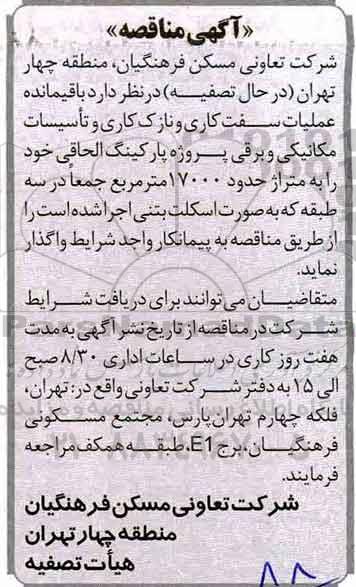 «آگهی مناقصه»
شرکت تعاونی مسکن فرهنگیان، منطقه چهار
تهران (در حال تصفیه) در نظر دارد باقیمانده
عملیات سفت کاری و نازک کاری و تأسیسات
مکانیکی و برقی پروژه پارکینگ الحاقی خود
را به متراژ حدود ۱۷۰۰۰ مترمربع جمعاً در سه
طبقه که به صورت اسکلت بتنی اجرا شده است را
از طریق مناقصه به پیمانکار واجد شرایط واگذار
نماید.
متقاضیان می‌توانند برای دریافت شرایط
شرکت در مناقصه از تاریخ نشر آگهی به مدت
هفت روز کاری در ساعات اداری ۸/۳۰ صبح
الی ۱۵ به دفتر شرکت تعاونی واقع در: تهران،
فلکه چهارم تهران‌پارس، مجتمع مسکونی
فرهنگیان، برج E1، طبقه همکف مراجعه
فرمایند.
شرکت تعاونی مسکن فرهنگیان
منطقه چهار تهران
هیأت تصفیه